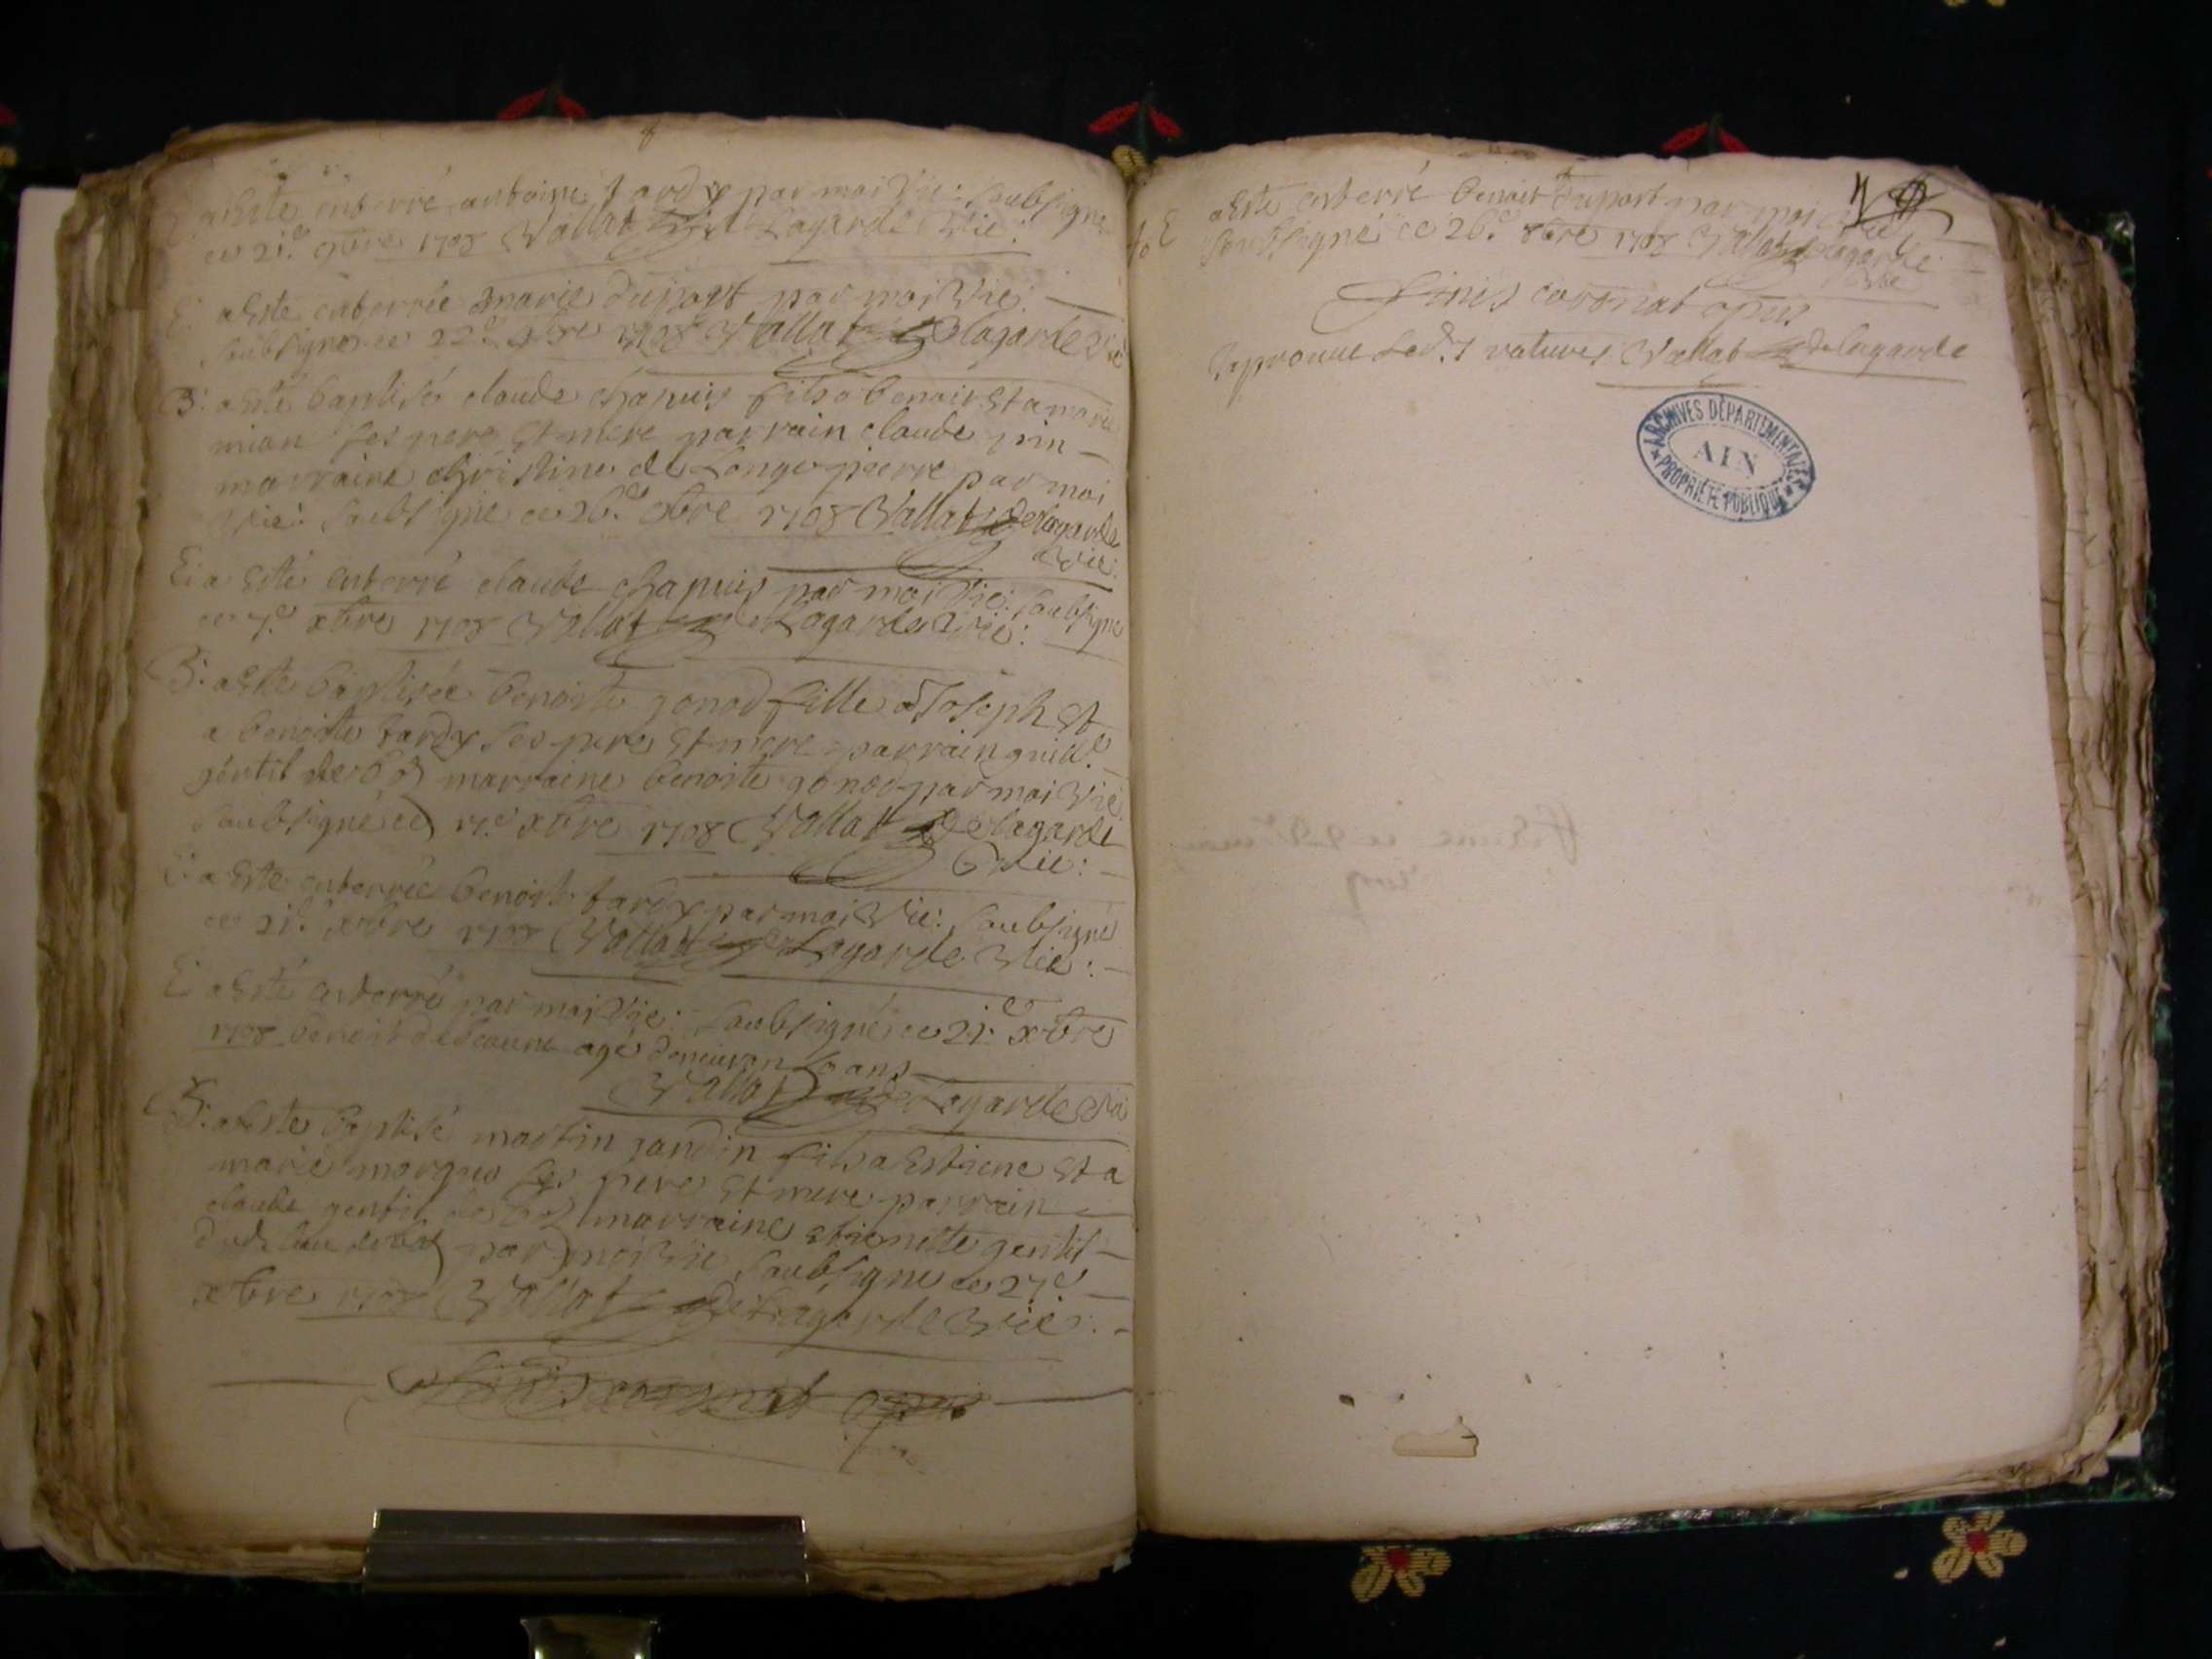 E: a este enterré antoine tardy par moi Vic: soubsigné
ce 21.e 9bre 1708 Vallat De Lagarde Vic:
E: a este enterrée marie dupart par moi Vic:
soubsigné ce 22.e 9bre 1708 Vallat Delagarde Vic
B: a esté baptisé claude chapuis fils a benoit et a marie
mion ses pere et mere parrain claude pin
marraine christine de Longepierre par moi
Vic: soubsigné ce 26.e 9bre 1708 Vallat Delagarde
Vic:
E: a esté enterré claude chapuis par moi Vic: soubsigné
ce 7.e xbre 1708 Vallat de Lagarde Vic:
B: a este baptisée benoite gonod fille a Joseph et
a benoite tardy ses pere et mere parrain
gentil de marraine benoite gonod par moi Vic
soubsigné ce 17.e xbre 1708 Vallat Delagarde
Vic:
E: a este enterrée benoite tardy par moi Vic: soubsigné
ce 21.e xbre 1708 Vallat de Lagarde Vic:
E: a esté enterré par moi Vic: soubsigné ce 21.e xbre
1708 benoit agé denviron ans
Vallat de Lagarde Vic
B: a este baptisé martin jandin fils a Estiene et a
marie morgue ses pere et mere parrain
claude gentil de marraine etienette gentil
par moi Vic soubsigné ce 27.e
xbre 1708 Vallat de Lagarde Vic:
finis coronat opus
E a este enterré benoit dupart par moi
soubsigné ce 26.e 8bre 1708 Vallat Delagarde
Vic
Finis coronat opus
Japrouue les d. ratures Vallat delagarde
ARCHIVES DÉPARTEMENTALES
AIN
PROPRIÉTÉ PUBLIQUE